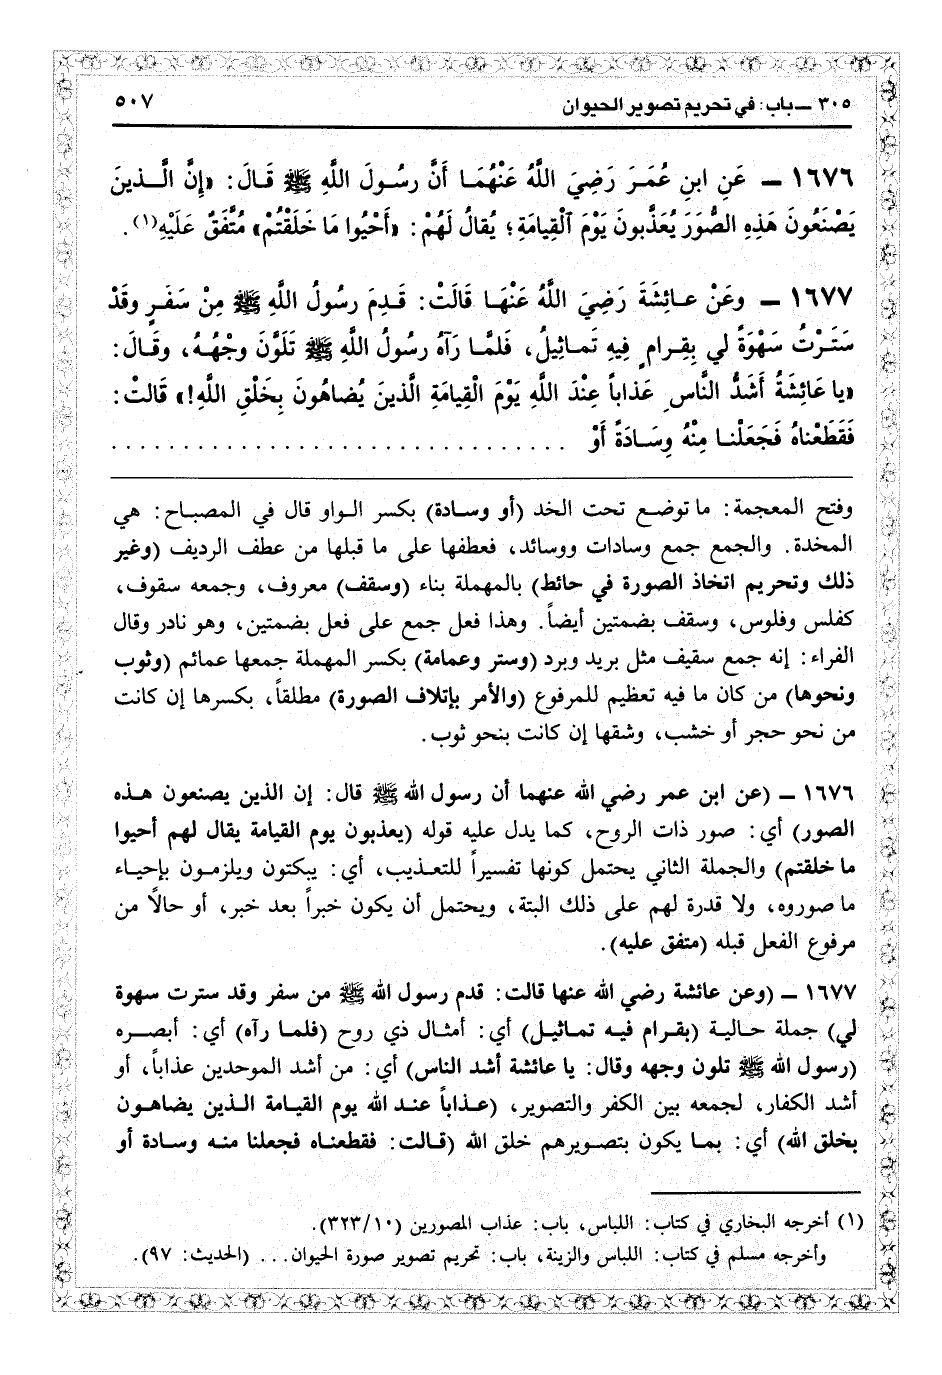 ٣٠٥ ــ باب: في تحريم تصوير الحيوان ٥٠٧
١٦٧٦ ــ عَنِ ابنِ عُمَرَ رَضِيَ اللَّهُ عَنْهُمَا أَنَّ رسُولَ اللَّهِ ﷺ قَالَ: «إِنَّ الَّذينَ
يَصْنَعُونَ هَذِهِ الصُّوَرَ يُعَذَّبونَ يَوْمَ ٱلْقِيامَةِ؛ يُقالُ لَهُمْ: «أَحْيُوا مَا خَلَقْتُمْ» مُتَّفَقٌ عَلَيْهِ(١).
١٦٧٧ ــ وعَنْ عائِشَةَ رَضِيَ اللَّهُ عَنْهَا قَالَتْ: قَدِمَ رسُولُ اللَّهِ ﷺ مِنْ سَفَرٍ وقَدْ
سَتَرْتُ سَهْوَةً لي بِقِرامٍ فِيهِ تَماثِيلُ، فَلمَّا رَآهُ رسُولُ اللَّهِ ﷺ تَلَوَّنَ وجْهُهُ، وقَالَ:
«يا عَائِشَةُ أَشَدُّ النَّاسِ عَذاباً عِنْدَ اللَّهِ يَوْمَ الْقِيامَةِ الَّذينَ يُضاهُونَ بِخَلْقِ اللَّهِ!» قَالتْ:
فَقَطَعْناهُ فَجَعَلْنا مِنْهُ وِسَادَةً أَوْ . . . . . . . . . . . . . . . . . . . . . . . . . . . . . . . .
وفتح المعجمة: ما توضع تحت الخد (أو وسادة) بكسر الواو قال في المصباح: هي
المخدة. والجمع جمع وسادات ووسائد، فعطفها على ما قبلها من عطف الرديف (وغير
ذلك وتحريم اتخاذ الصورة في حائط) بالمهملة بناء (وسقف) معروف، وجمعه سقوف،
كفلس وفلوس، وسقف بضمتين أيضاً. وهذا فعل جمع على فعل بضمتين، وهو نادر وقال
الفراء: إنه جمع سقيف مثل بريد وبرد (وستر وعمامة) بكسر المهملة جمعها عمائم (وثوب
ونحوها) من كان ما فيه تعظيم للمرفوع (والأمر بإتلاف الصورة) مطلقاً، بكسرها إن كانت
من نحو حجر أو خشب، وشقها إن كانت بنحو ثوب.
١٦٧٦ ــ (عن ابن عمر رضي الله عنهما أن رسول الله ﷺ قال: إن الذين يصنعون هذه
الصور) أي: صور ذات الروح، كما يدل عليه قوله (يعذبون يوم القيامة يقال لهم أحيوا
ما خلقتم) والجملة الثاني يحتمل كونها تفسيراً للتعذيب، أي: يبكتون ويلزمون بإحياء
ما صوروه، ولا قدرة لهم على ذلك البتة، ويحتمل أن يكون خبراً بعد خبر، أو حالاً من
مرفوع الفعل قبله (متفق عليه).
١٦٧٧ ــ (وعن عائشة رضي الله عنها قالت: قدم رسول الله ﷺ من سفر وقد سترت سهوة
لي) جملة حالية (بقرام فيه تماثيل) أي: أمثال ذي روح (فلما رآه) أي: أبصره
(رسول الله ﷺ تلون وجهه وقال: يا عائشة أشد الناس) أي: من أشد الموحدين عذاباً، أو
أشد الكفار، لجمعه بين الكفر والتصوير، (عذاباً عند الله يوم القيامة الذين يضاهون
بخلق الله) أي: بما يكون بتصويرهم خلق الله (قالت: فقطعناه فجعلنا منه وسادة أو
(١) أخرجه البخاري في كتاب: اللباس، باب: عذاب المصورين (٣٢٣/١٠).
وأخرجه مسلم في كتاب: اللباس والزينة، باب: تحريم تصوير صورة الحيوان... (الحديث: ٩٧).